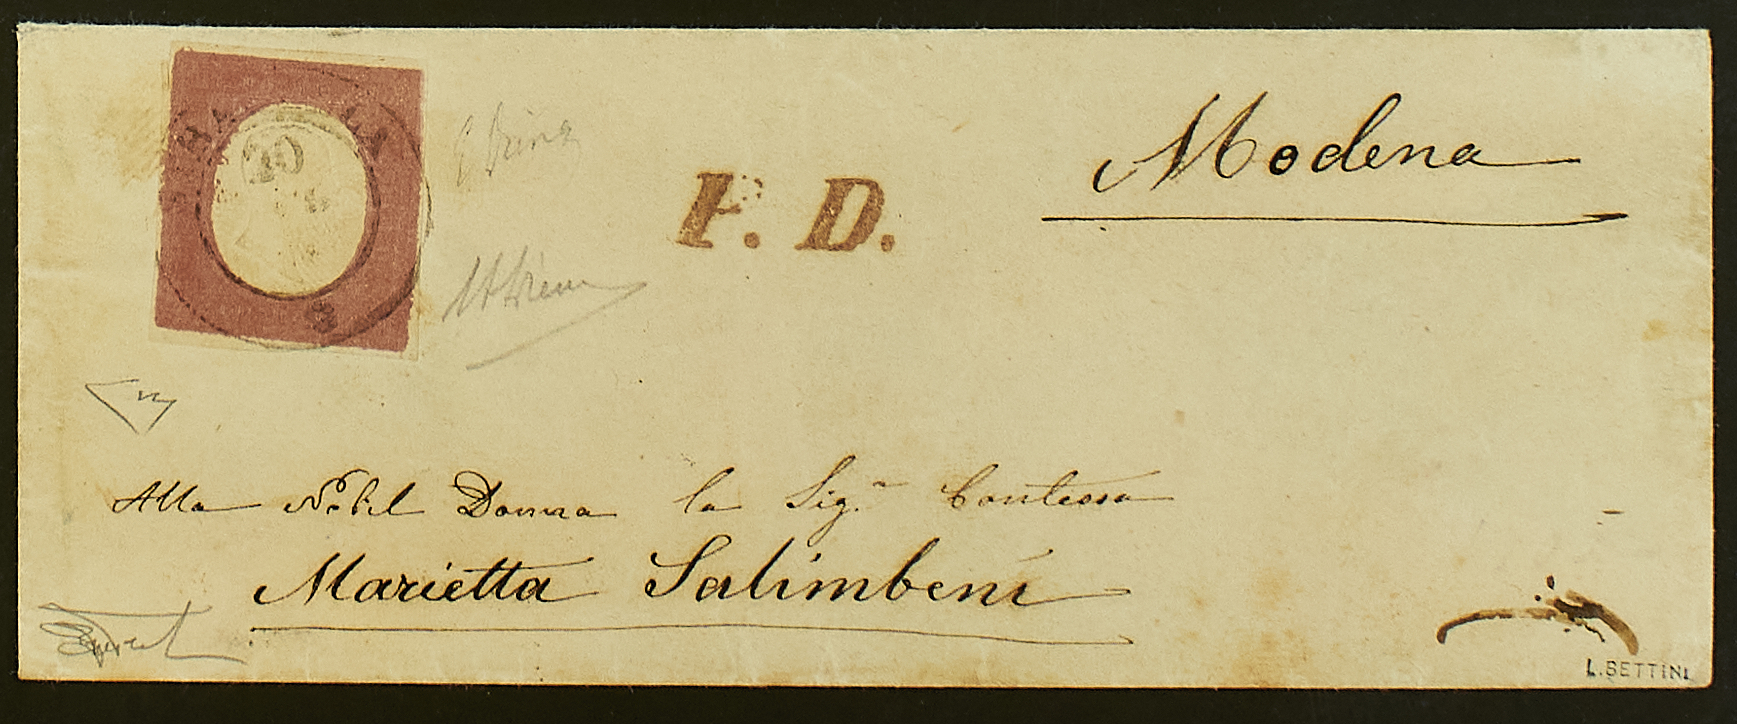 20
P. D.
Modena
Alla Nobil Donna la Sig.ª Contessa
Marietta Salimbeni
L. BETTINI